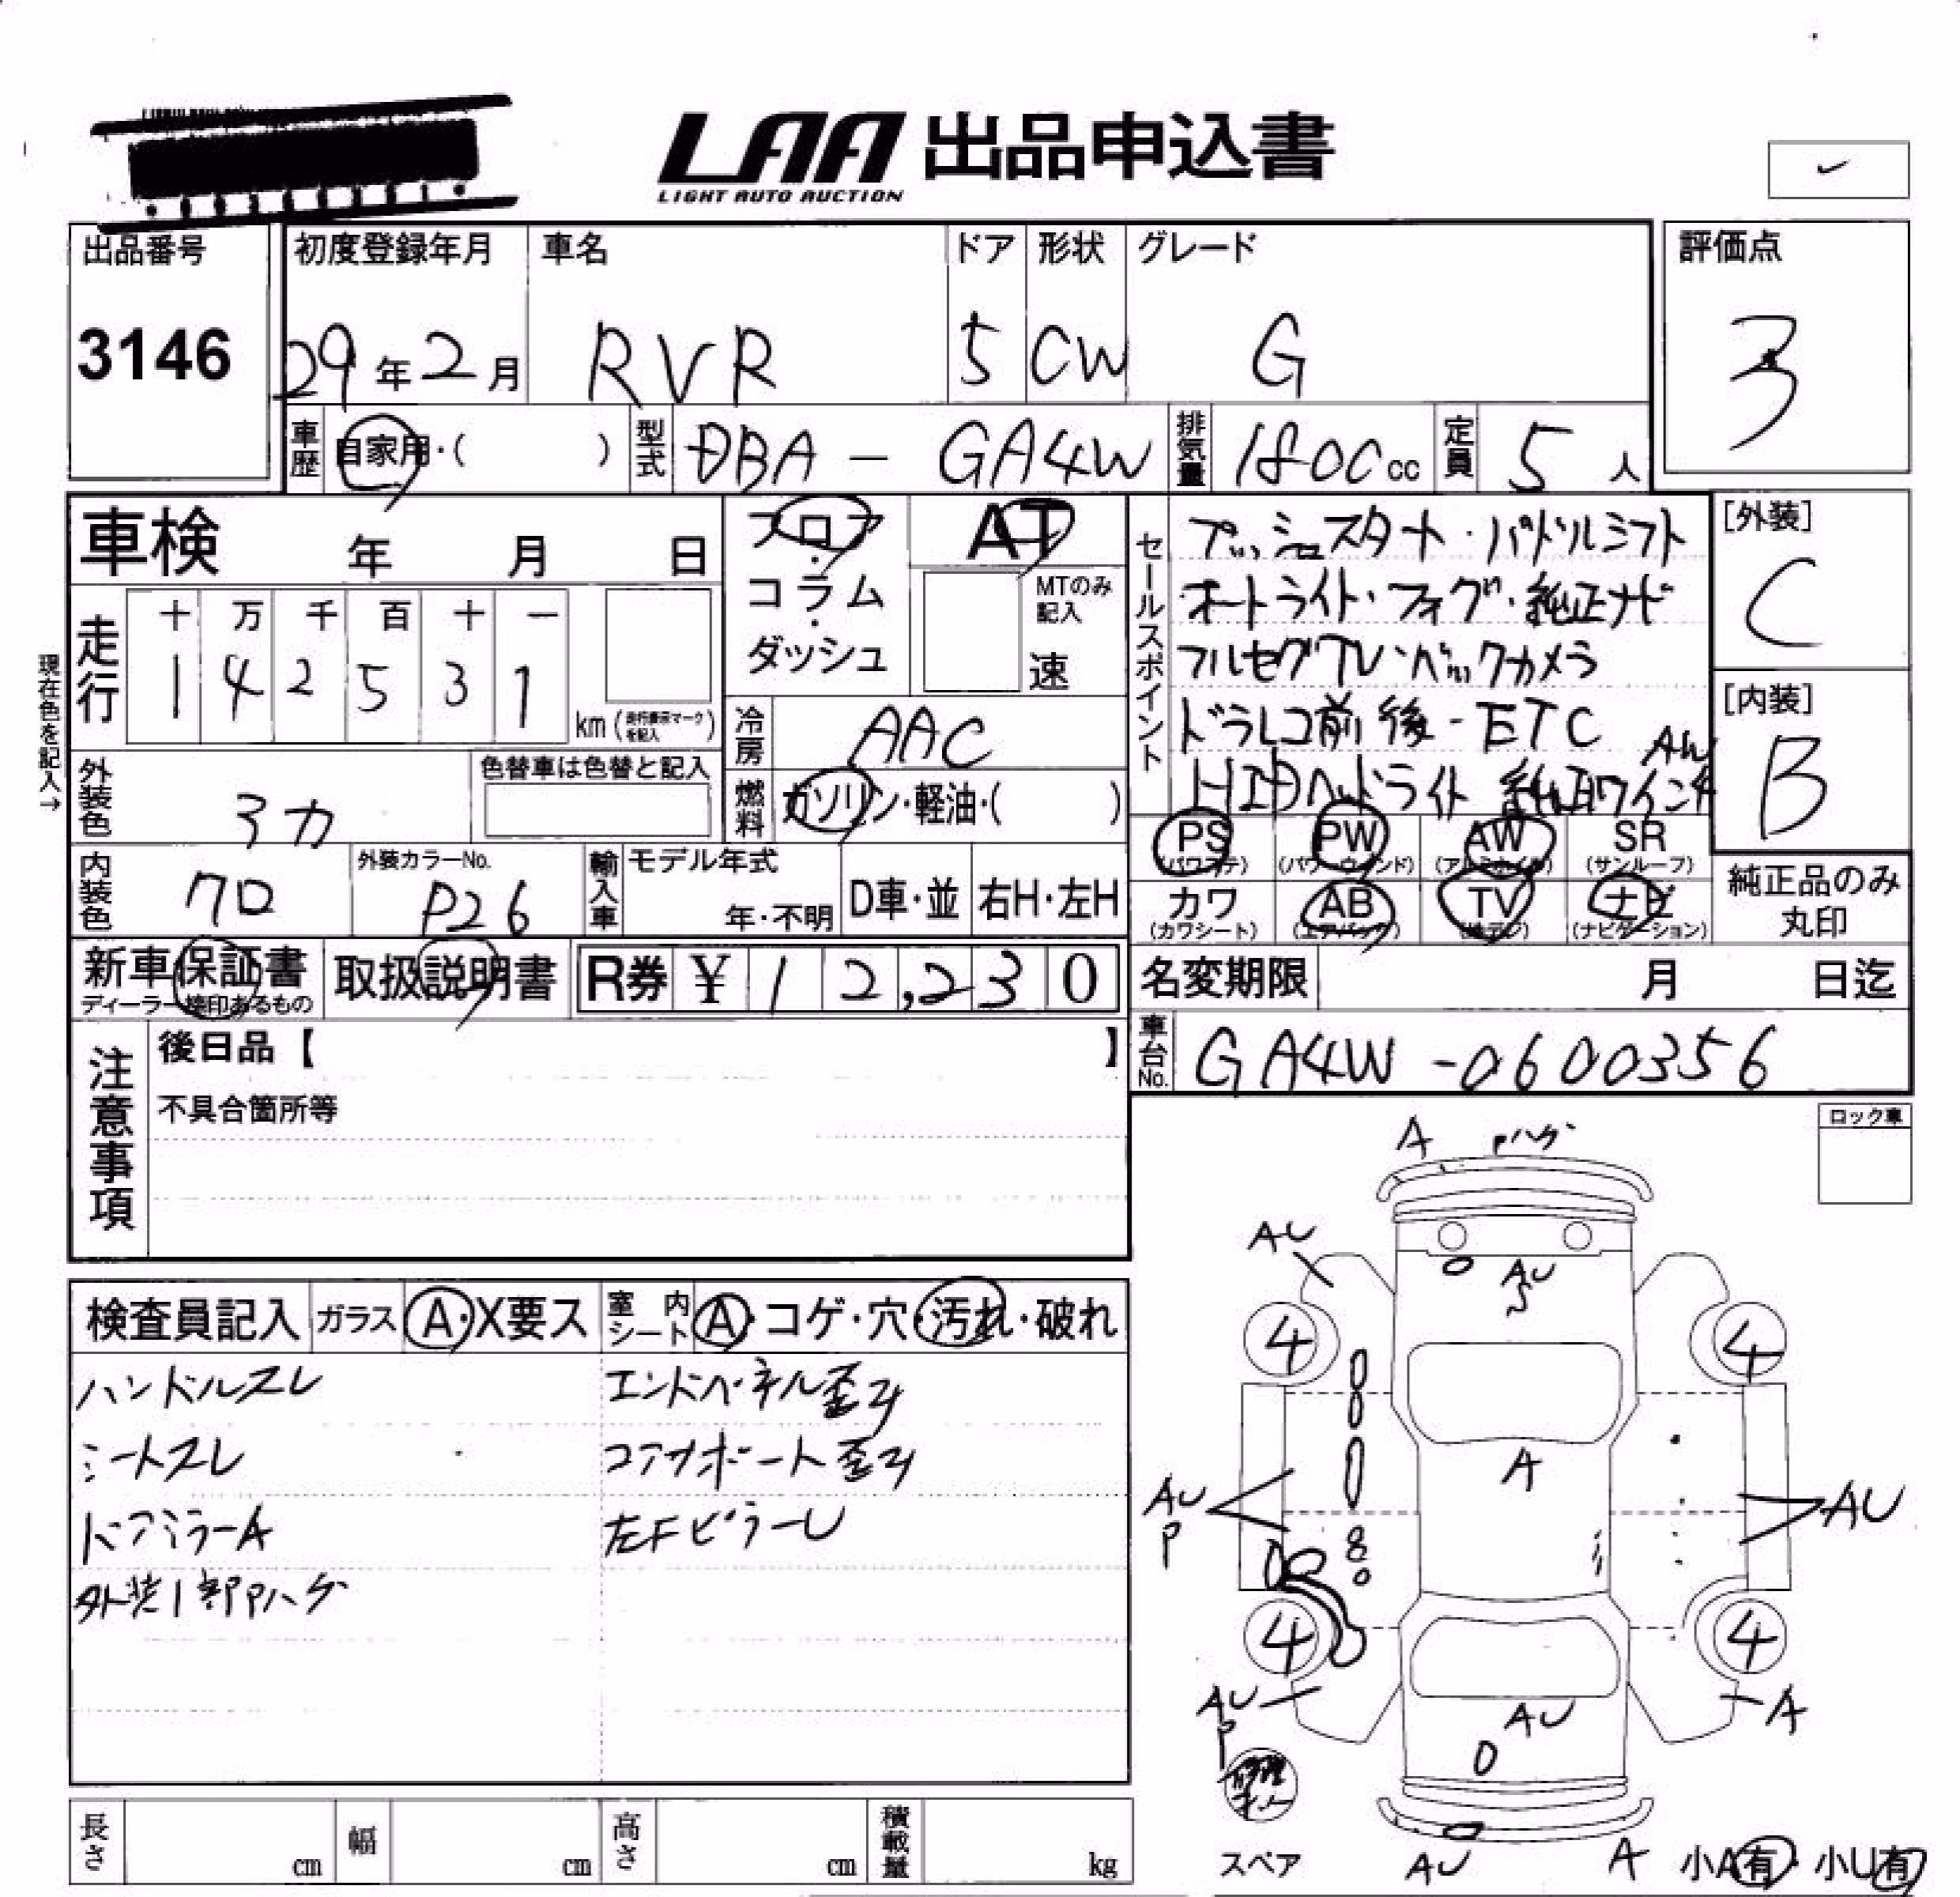 LAA 出品申込書
LIGHT AUTO AUCTION
出品番号
3146
初度登録年月
29年2月
車名
RVR
ドア
5
形状
CW
グレード
G
評価点
3
車歴 自家用・( )
型式 DBA - GA4W
排気量 1800cc
定員 5人
車検 年 月 日
フロア・コラム・ダッシュ
AT
MTのみ記入
速
セールスポイント
プッシュスタート・パドルシフト
オートライト・フォグ・純正ナビ
フルセグTV・バックカメラ
ドラレコ前後-ETC
HIDヘッドライト
AW
[外装]
C
[内装]
B
現在色を記入→
走行
十 万 千 百 十 一
1 4 2 5 3 1
km(走行表示マークを記入)
冷房 AAC
燃料 ガソリン・軽油・( )
外装色 3カ
色替車は色替と記入
内装色 クロ
外装カラーNo.
P26
輸入車 モデル年式
年・不明
D車・並 右H・左H
PS (パワステ)
PW (パワーウィンド)
AW (アルミホイル)
SR (サンルーフ)
カワ (カワシート)
AB (エアバッグ)
TV (地デジ)
ナビ (ナビゲーション)
純正品のみ丸印
新車保証書
ディーラー捺印あるもの
取扱説明書
R券 ¥12,230
名変期限 月 日迄
車台No. GA4W-0600356
注意事項
後日品【 】
不具合箇所等
ロック車
検査員記入 ガラス A・X要ス
室内シート A・コゲ・穴・汚れ・破れ
ハンドルスレ
シートスレ
ドアミラーA
外装1部Pハゲ
エンドパネル歪み
コアサポート歪み
左FピラーU
A Pハゲ
AU
AU
4 4
A
AU P
AU
4 4
AU P
AU
A
AU
A
スペア
小A有・小U有
長さ cm
幅 cm
高さ cm
積載量 kg